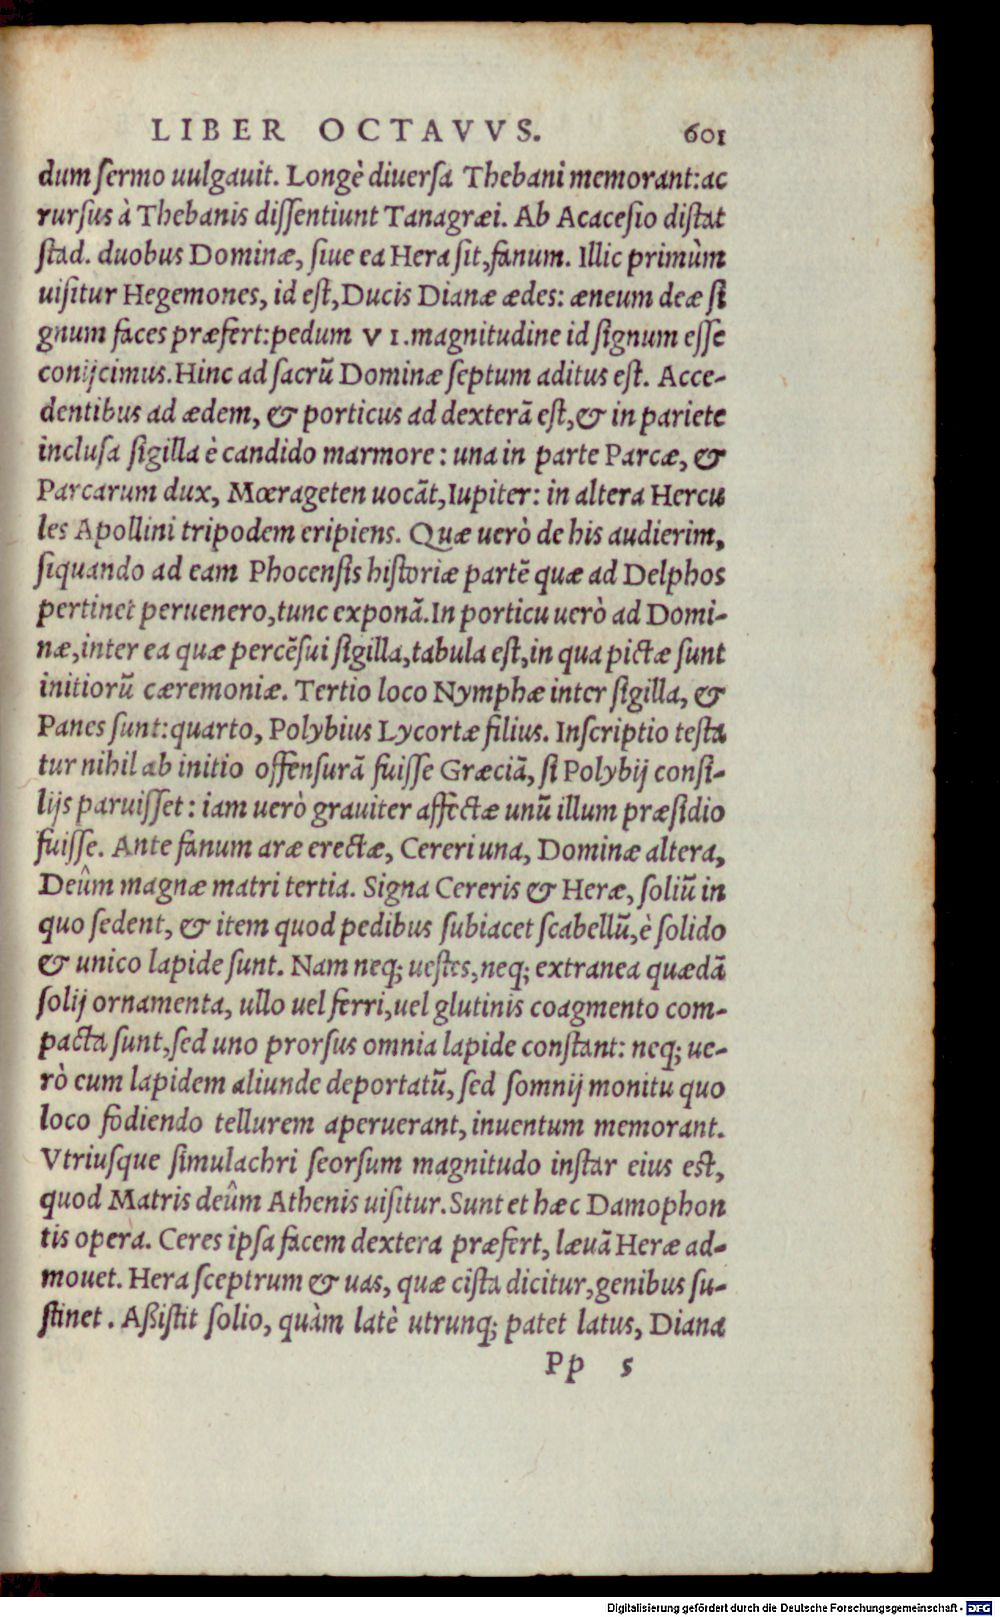 LIBER OCTAVVS. 601
dum sermo uulgauit. Longè diuersa Thebani memorant: ac
rursus à Thebanis dissentiunt Tanagræi. Ab Acacesio distat
stad. duobus Dominæ, siue ea Hera sit, fanum. Illic primùm
uisitur Hegemones, id est, Ducis Dianæ ædes: æneum deæ si
gnum faces præfert: pedum VI. magnitudine id signum esse
conijcimus. Hinc ad sacrũ Dominæ septum aditus est. Acce-
dentibus ad ædem, & porticus ad dexterã est, & in pariete
inclusa sigilla è candido marmore: una in parte Parcæ, &
Parcarum dux, Mœrageten uocãt, Iupiter: in altera Hercu
les Apollini tripodem eripiens. Quæ uerò de his audierim,
siquando ad eam Phocensis historiæ partẽ quæ ad Delphos
pertinet peruenero, tunc exponã. In porticu uerò ad Domi-
næ, inter ea quæ percẽsui sigilla, tabula est, in qua pictæ sunt
initiorũ cæremoniæ. Tertio loco Nymphæ inter sigilla, &
Panes sunt: quarto, Polybius Lycortæ filius. Inscriptio testa
tur nihil ab initio offensurã fuisse Græciã, si Polybij consi-
lijs paruisset: iam uerò grauiter affectæ unũ illum præsidio
fuisse. Ante fanum aræ erectæ, Cereri una, Dominæ altera,
Deûm magnæ matri tertia. Signa Cereris & Heræ, soliũ in
quo sedent, & item quod pedibus subiacet scabellũ, è solido
& unico lapide sunt. Nam neq; uestes, neq; extranea quædã
solij ornamenta, ullo uel ferri, uel glutinis coagmento com-
pacta sunt, sed uno prorsus omnia lapide constant: neq; ue-
rò eum lapidem aliunde deportatũ, sed somnij monitu quo
loco fodiendo tellurem aperuerant, inuentum memorant.
Vtriusque simulachri seorsum magnitudo instar eius est,
quod Matris deûm Athenis uisitur. Sunt et hæc Damophon
tis opera. Ceres ipsa facem dextera præfert, læuã Heræ ad-
mouet. Hera sceptrum & uas, quæ cista dicitur, genibus su-
stinet. Aßistit solio, quàm latè utrunq; patet latus, Diana
Pp 5
Digitalisierung gefördert durch die Deutsche Forschungsgemeinschaft - DFG